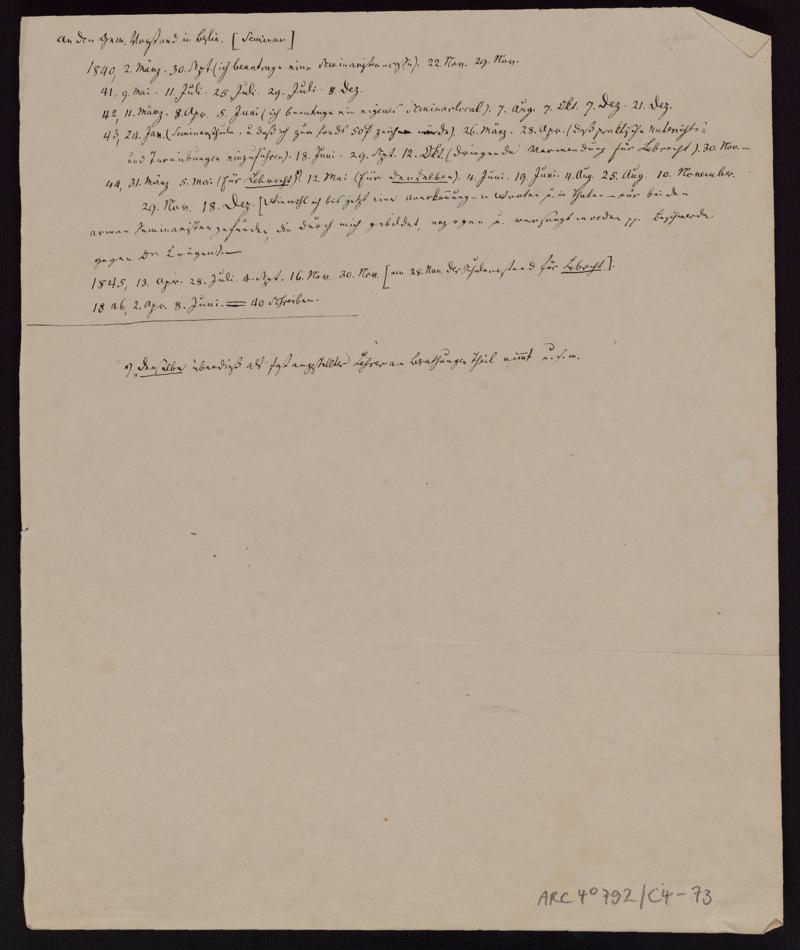 An den Gem. Vorstand in Berlin. [Seminar]
1840, 2. März. 30. Sept. (ich beantrage eine Seminaristen-). 22. Nov. 29. Nov.
41, 9. Mai. 11. Juli. 25. Juli. 29. Juli. 8 Dez.
42, 11. März. 8. Apr. 5. Juni (ich beantrage ein eigenes Seminarlocal). 7. Aug. 7. Okt. 7. Dez. 21. Dez.
43, 24. Jan. (Seminarschule, u. daß ich zum Fonds 50 zeichne). 26. März. 28. Apr. (daß praktische Unterrichts-
und Turnübungen einzuführen). 18. Juni. 29. Sept. 12. Okt. (dringende Verwendung für Lebrecht). 30. Nov. —
44, 31. März. 5. Mai (für Lebrecht). 12. Mai (für denselben). 4. Juni. 19. Juni. 4. Aug. 25. Aug. 10. November.
29. Nov. 18. Dez. [Wiewohl ich bis jetzt eine Anerkennung – in Worten u. in Thaten – nur bei den
armen Seminaristen gefunden, die durch mich gebildet, erzogen u. versorgt worden pp. Beschwerde
gegen die Lügen]. —
1845, 13. Apr. 28. Juli. 4. Sept. 16. Nov. 30. Nov. [am 28. Nov. der Schulvorstand für Lebrecht].
1846, 2. Apr. 8. Juni. = 40 Schreiben.
*) derselbe überdieß als fest angestellter Lehrer an Berathungen Theil nimmt u.s.w.
ARC 4° 792/C4-73